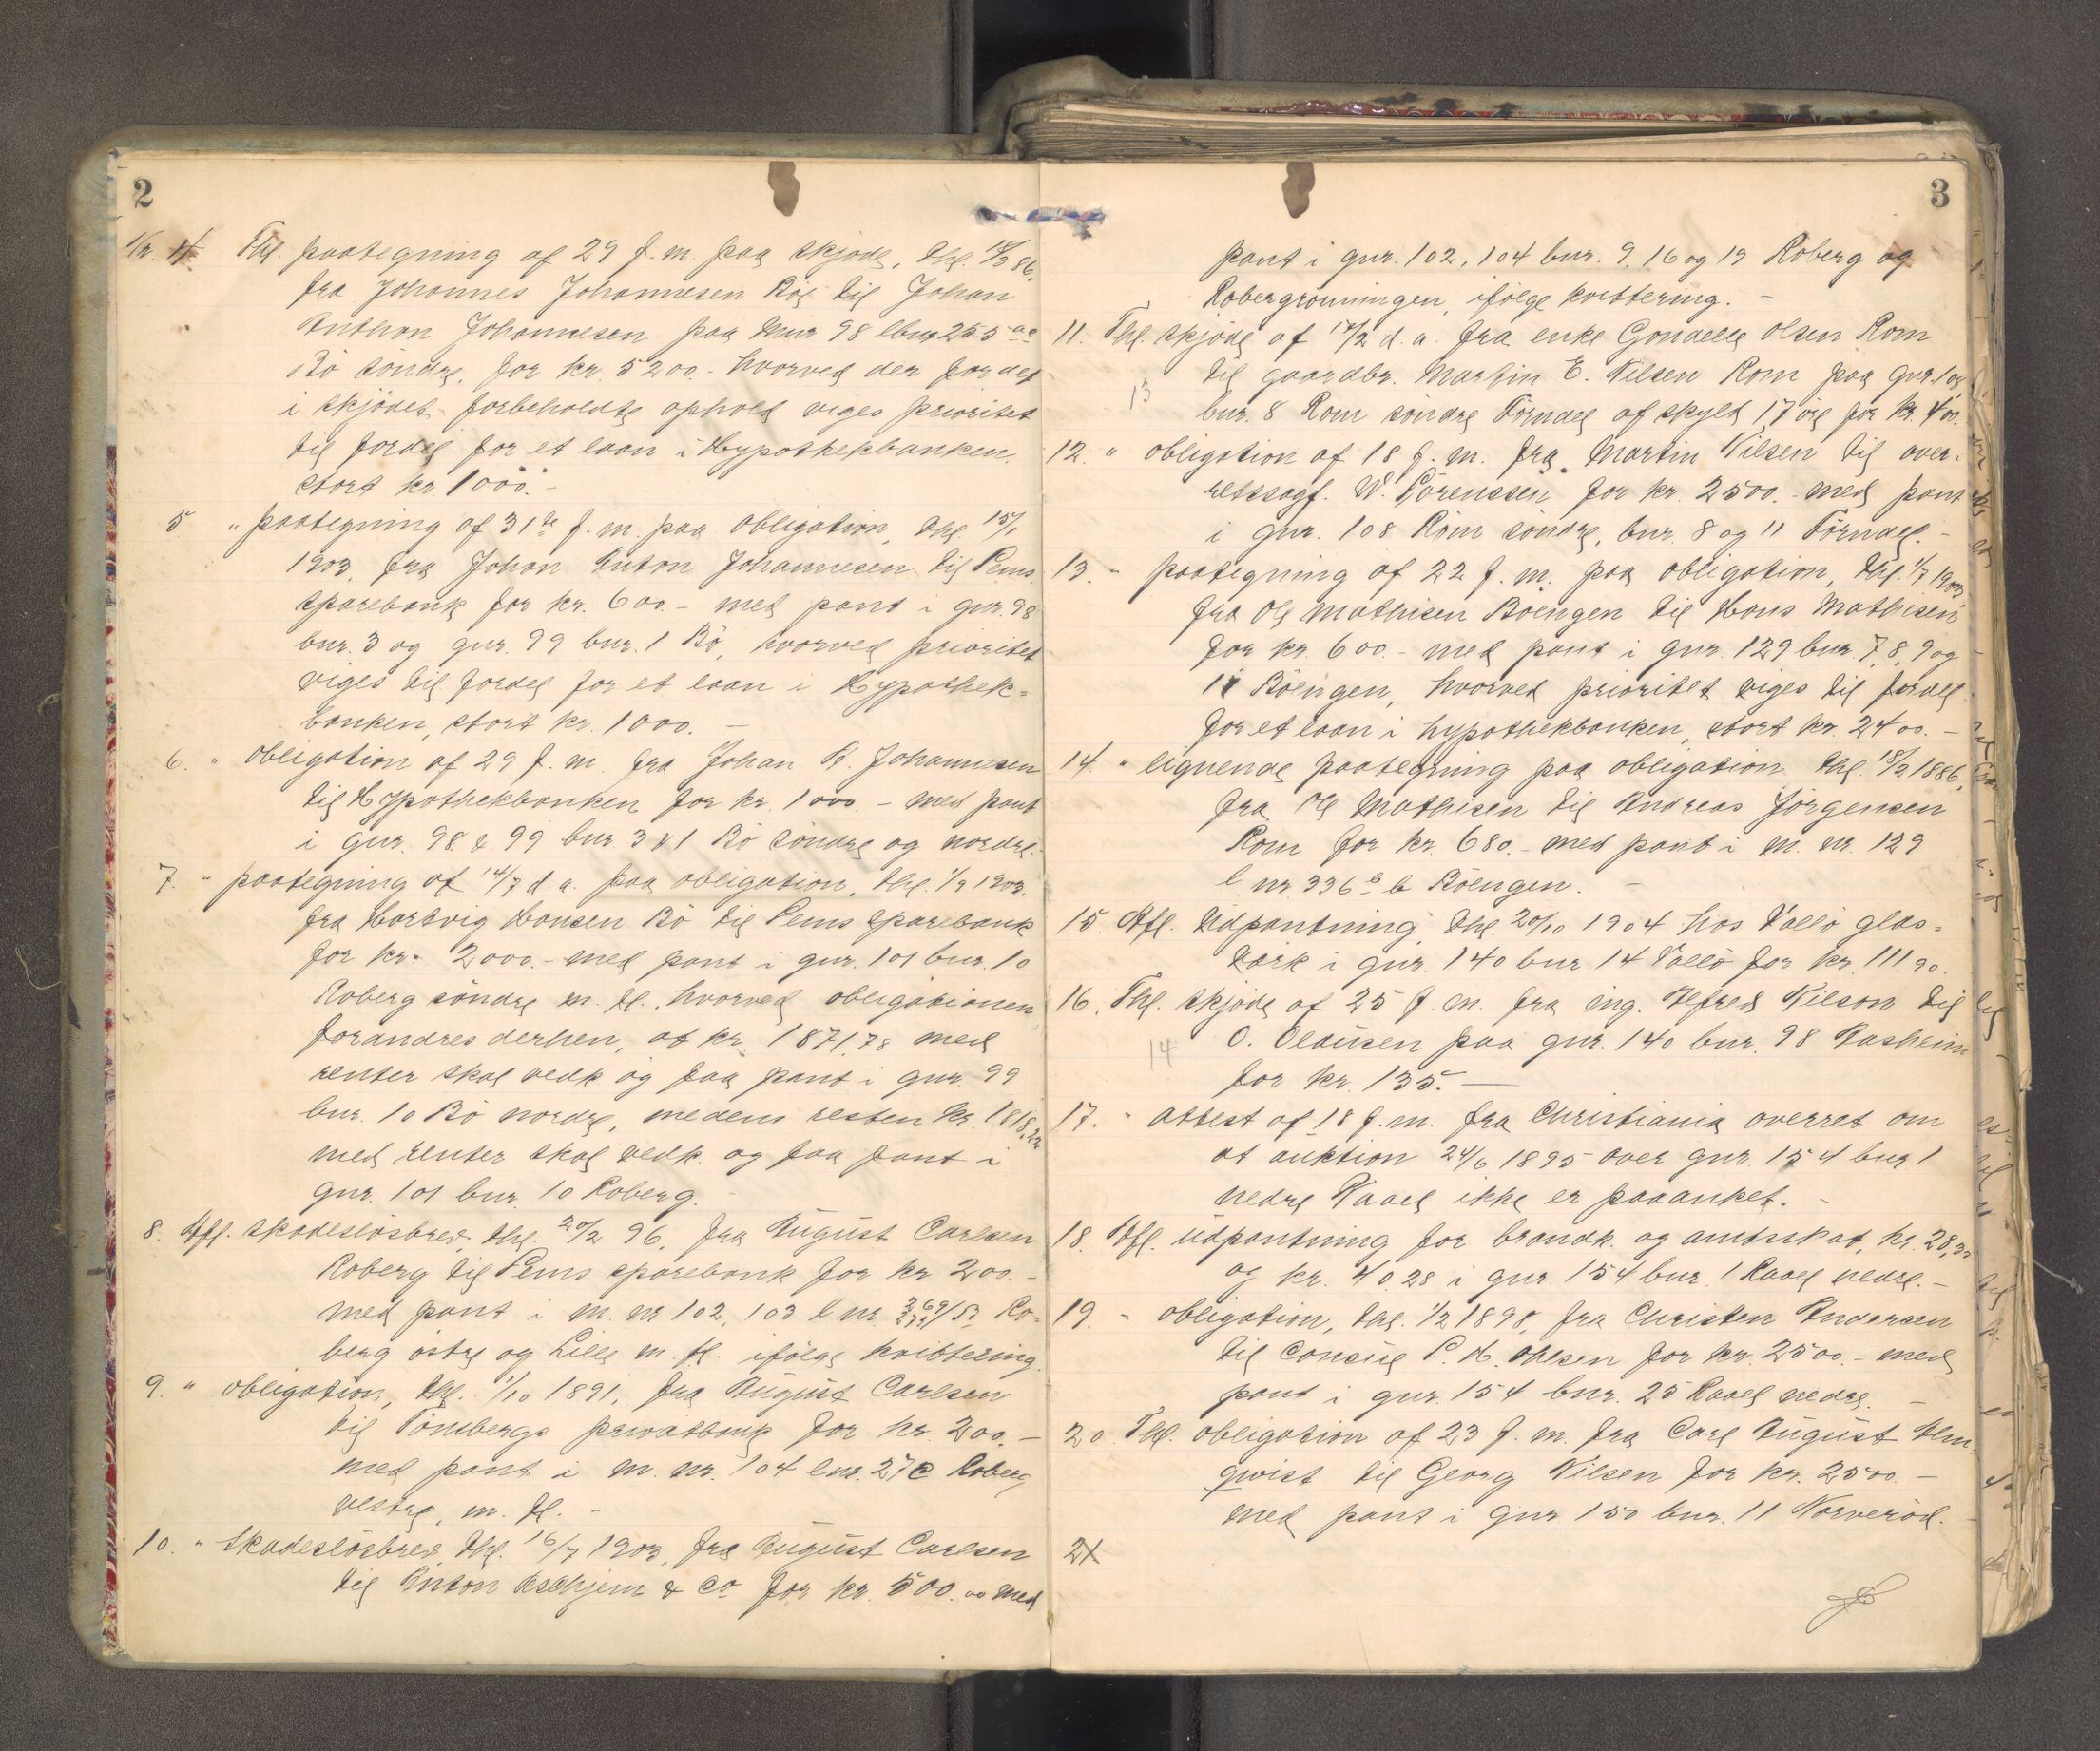 2
Nr. 4. Thl. paategning af 29 f. m. paa skjøde, thl. 18/3 86,
fra Johannes Johannesen Bö til Johan
Anthon Johannesen paa Mnr 98 lbnr 255 ac
Bö söndre, for kr. 5200.- hvorved der for det
i skjödet forbeholdte ophold viges prioritet
til fordel for et laan i Hypothekbanken,
stort kr. 1000.-
5 " paategning af 31te f. m. paa obligation, thl. 15/1
1903, fra Johan Anton Johannesen til Sems
sparebank for kr. 600.- med pant i gnr. 98
bnr. 3 og gnr. 99 bnr. 1 Bö, hvorved prioritet
viges til fordel for et laan i Hypothek-
banken, stort kr. 1000. -
6. " obligation af 29 f. m. fra Johan A. Johannesen
til Hypothekbanken for kr. 1000 - med pant
i gnr. 98 & 99 bnr 3 & 1 Bö söndre og nordre.
7. " paategning af 14/7 d. a. paa obligation, thl. 1/9 1903.
fra Hartvig Hansen Bö til Sems sparebank
for kr. 2000.- med pant i gnr. 101 bnr. 10
Roberg söndre m. fl., hvorved obligationen
forandres derhen, at kr. 1871,78 med
renter skal vedk og faa pant i gnr. 99
bnr. 10 Bö nordre, medens resten kr. 1818,22
med renter skal vedk. og faa pant i
gnr. 101 bnr. 10 Roberg. -
8. Afl. skadeslösbrev, thl. 20/2 96, fra August Carlsen
Roberg til Sems sparebank for kr 200.-
med pant i m. nr 102, 103 l. nr. Ro-
berg östre og Lille m. fl. ifölge kvittering.
9. " obligation, thl. 1/10 1891, fra August Carlsen
til Tönsbergs privatbank for kr. 200.-
med pant i m. nr. 104 lnr. 27 c Roberg
vestre, m. fl. -
10. " skadeslösbrev, thl. 16/7 1903, fra August Carlsen
til Anton Aschjem & Co for kr. 500.00 med
3
pant i gnr. 102, 104 bnr. 9, 16 og 19 Roberg og
Robergrönningen, ifölge kvittering. -
11. Thl. skjöde af 17/2 d. a. fra enke Gondelle Olsen Rom
til gaardbr. Martin E. Nilsen Rom paa gnr. 108
13
bnr. 8 Rom söndre Törndal af skyld 17 öre for kr. 400.
12. " obligation af 18 f. m. fra Martin Nilsen til over-
retssagf. W. Sörenssen for kr. 2500.- med pant
i gnr. 108 Rom söndre, bnr. 8 og 11 Törndal. -
13. " paategning af 22 f. m. paa obligation, thl. 1/7 1903,
fra Ole Mathisen Böengen til Hans Mathisen
for kr. 600.- med pant i gnr. 129 bnr. 7, 8, 9 og
11 Böengen, hvorved prioritet viges til fordel
for et laan i hypothekbanken, stort kr. 2400. -
14. " lignende paategning paa obligation thl. 18/2 1886,
fra Ole Mathisen til Andreas Jörgensen
Rom for kr. 680.- med pant i m. nr. 129
l nr. 336 a b Böengen. -
15. Afl. Udpantning, thl. 20/10 1904 hos Vallö glas-
værk i gnr. 140 bnr. 14 Vallö for kr. 111.90.
16. Thl. skjöde af 25 f. m. fra ing. Alfred Nilson til
14
O. Olausen paa gnr. 140 bnr. 98 Rasheim
for kr. 135. -
17. " attest af 18 f. m. fra Christiania overret om
at auktion 24/6 1895 over gnr. 154 bnr 1
nedre Raael ikke er paaanket. -
18. Afl. udpantning for brandk. og amtsskat, kr. 28,35
og kr. 40.28 i gnr. 154 bnr. 1 Raael nedre. -
19. " obligation, thl. 1/2 1898, fra Christen Andersen
til Consul P. H. Ohlsen for kr. 2500.- med
pant i gnr. 154 bnr. 25 Raael nedre. -
20. Thl. obligation af 23 f. m. fra Carl August Alm-
qwist til Georg Nilsen for kr. 2500. -
med pant i gnr 150 bnr. 11 Narveröd. -
21